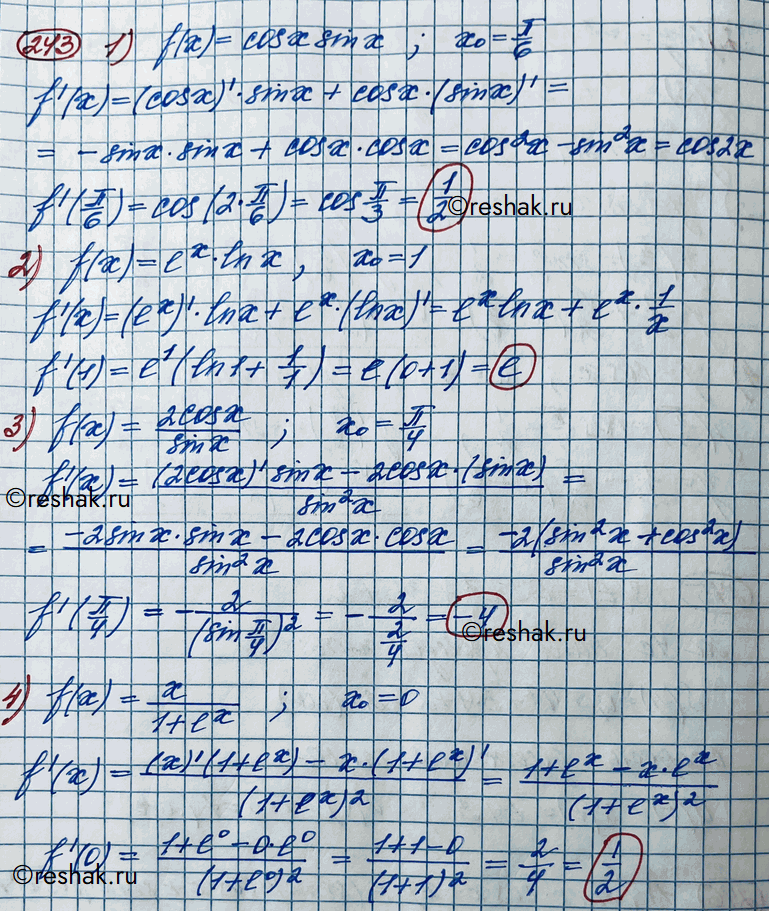 243 1) f(x) = cosx sinx ; x₀ = π/6
f'(x) = (cosx)'·sinx + cosx·(sinx)' =
= -sinx·sinx + cosx·cosx = cos²x - sin²x = cos2x
f'(π/6) = cos(2·π/6) = cos π/3 = 1/2
©reshak.ru
2) f(x) = eˣ·lnx, x₀ = 1
f'(x) = (eˣ)'·lnx + eˣ·(lnx)' = eˣlnx + eˣ·1/x
f'(1) = e¹(ln1 + 1/1) = e(0+1) = e
3) f(x) = 2cosx/sinx ; x₀ = π/4
f'(x) = ((2cosx)'sinx - 2cosx·(sinx))/sin²x =
©reshak.ru
= (-2sinx·sinx - 2cosx·cosx)/sin²x = -2(sin²x + cos²x)/sin²x
f'(π/4) = -2/(sin π/4)² = -2/(2/4) = -4
©reshak.ru
4) f(x) = x/(1+eˣ) ; x₀ = 0
f'(x) = ((x)'(1+eˣ) - x·(1+eˣ)')/(1+eˣ)² = (1+eˣ - x·eˣ)/(1+eˣ)²
f'(0) = (1+e⁰-0·e⁰)/(1+e⁰)² = (1+1-0)/(1+1)² = 2/4 = 1/2
©reshak.ru